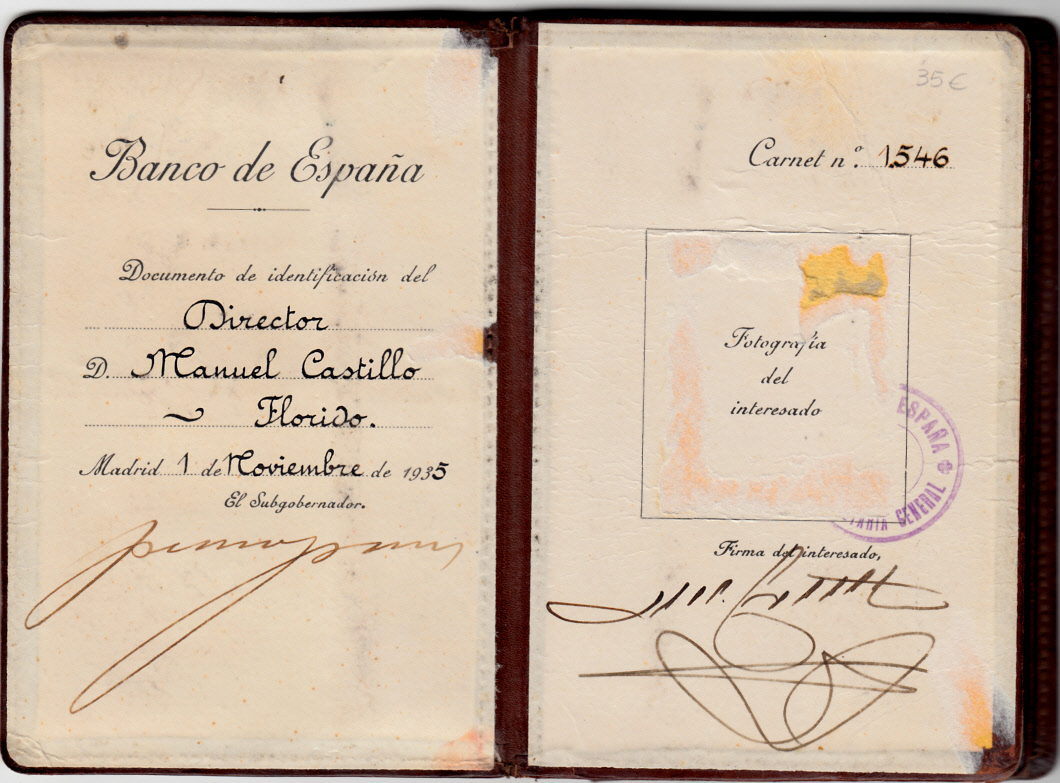 Banco de España
Documento de identificación del
Director
D. Manuel Castillo
Florido.
Madrid 1 de Noviembre de 1935
El Subgobernador.
35 €
Carnet n.º 1.546
Fotografía
del
interesado
ESPAÑA
GENERAL
Firma del interesado,